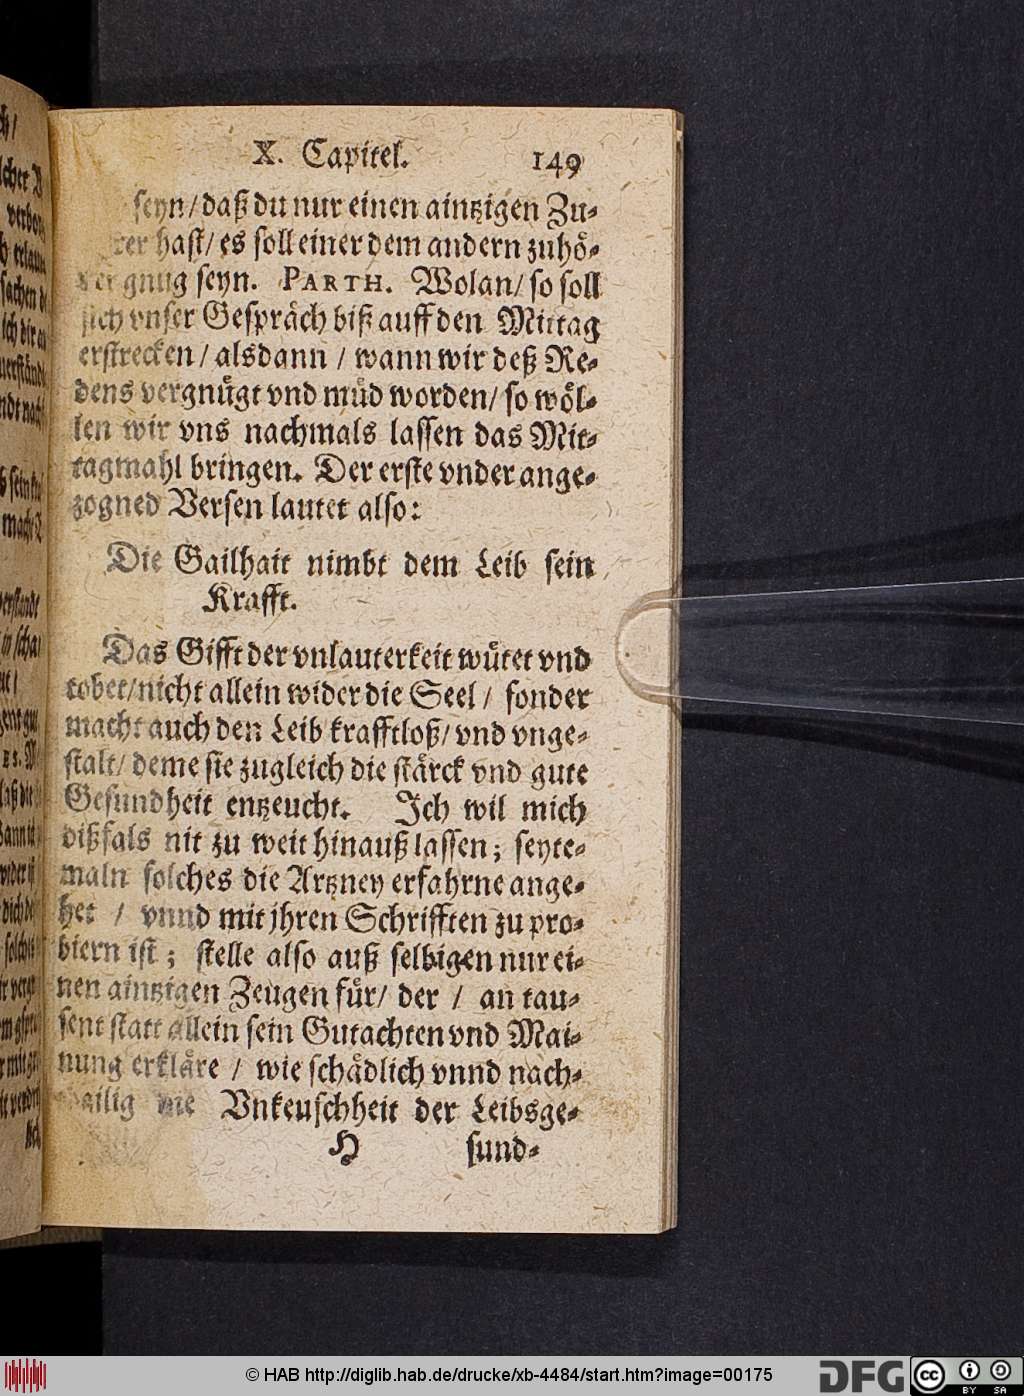 X. Capitel. 149
seyn/ daß du nur einen aintzigen Zu-
rer hast/ es soll einer dem andern zuhö-
gnug seyn. PARTH. Wolan/ so soll
sich vnser Gespräch biß auff den Mittag
erstrecken / alsdann / wann wir deß Re-
dens vergnügt vnd müd worden/ so wöl-
len wir vns nachmals lassen das Mit-
tagmahl bringen. Der erste vnder ange-
zogned Versen lautet also:
Die Gailhait nimbt dem Leib sein
Krafft.
Das Gifft der vnlauterkeit wütet vnd
tobet/ nicht allein wider die Seel / sonder
macht auch den Leib krafftloß/ vnd vnge-
stalt/ deme sie zugleich die stärck vnd gute
Gesundheit entzeucht. Ich wil mich
dißfals nit zu weit hinauß lassen; seyte-
maln solches die Artzney erfahrne ange-
het / vnnd mit jhren Schrifften zu pro-
biern ist; stelle also auß selbigen nur ei-
nen aintzigen Zeugen für/ der / an tau-
sent statt allein sein Gutachten vnd Mai-
nung erkläre / wie schädlich vnnd nach-
Vnkeuschheit der Leibsge-
H sund-
© HAB http://diglib.hab.de/drucke/xb-4484/start.htm?image=00175
DFG
cc BY SA